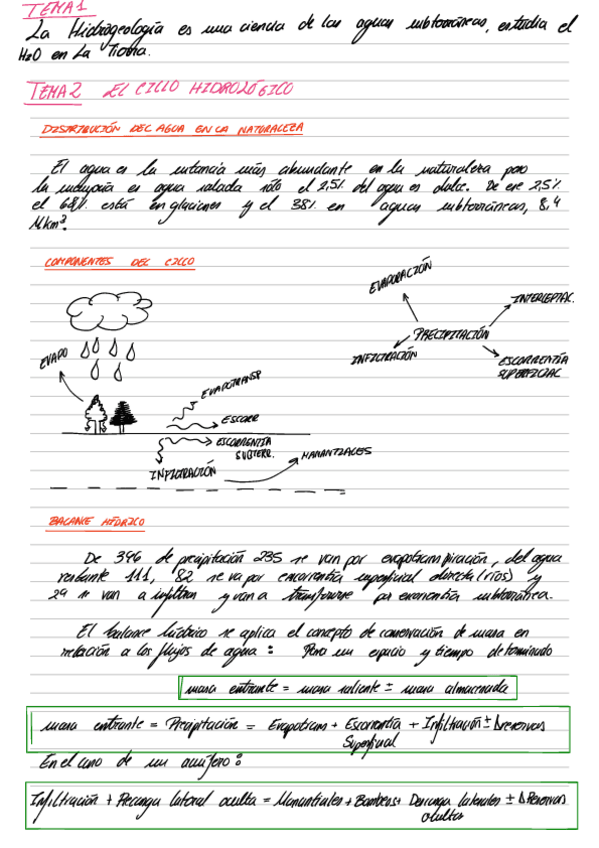 TEMA 1
La Hidrogeología es una ciencia de las aguas subterráneas, estudia el
H2O en La Tierra.
TEMA 2 EL CICLO HIDROLÓGICO
DISTRIBUCIÓN DEL AGUA EN LA NATURALEZA
El agua es la sustancia más abundante en la naturaleza pero
la mayoría es agua salada sólo el 2,5% del agua es dulce. De ese 2,5%
el 68% está en glaciares y el 38% en aguas subterráneas, 8,4
Mkm3.
COMPONENTES DEL CICLO
EVAPORACIÓN
INTERCEPTAC.
PRECIPITACIÓN
INFILTRACIÓN
ESCORRENTÍA
SUPERFICIAL
EVAPO
EVAPOTRANSP
ESCORR
ESCORRENTÍA
SUBTERR.
MANANTIALES
INFILTRACIÓN
BALANCE HÍDRICO
De 346 de precipitación 235 se van por evapotranspiración, del agua
restante 111, 82 se va por escorrentía superficial directa (ríos) y
29 se van a infiltrar y van a transformarse por escorrentía subterránea.
El balance hídrico se aplica el concepto de conservación de masa en
relación a los flujos de agua: Para un espacio y tiempo determinado
masa entrante = masa saliente ± masa almacenada
masa entrante = Precipitación = Evapotrans + Escorrentía + Infiltración ± Δreservas
Superficial
En el caso de un acuífero:
Infiltración + Recarga lateral oculta = Manantiales + Bombeos + Descarga laterales ± ΔReservas
ocultas